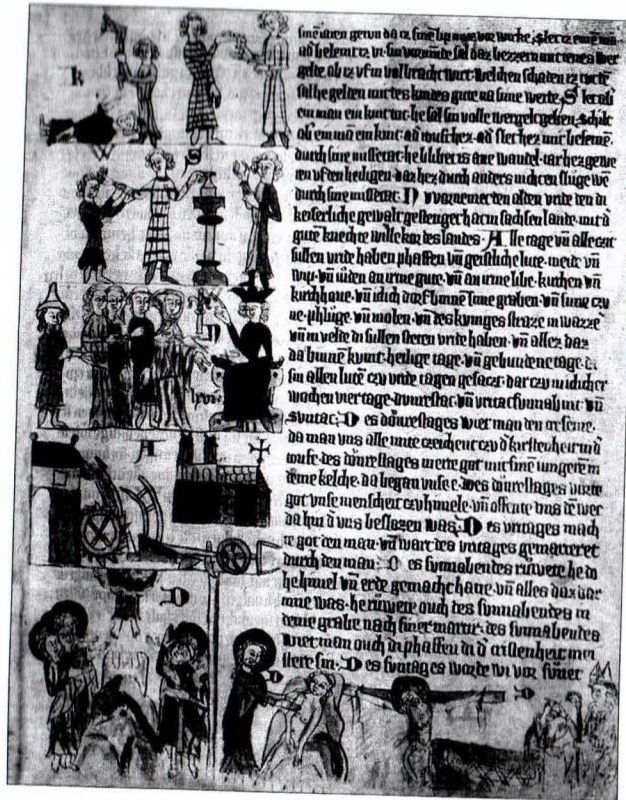 wer
gelde ab iz vf in volbracht wirt welchen schaden iz tut
sal he gelden mit des kindes gute na sime werde S
ein man ein kint tut he sal sin volle wergelt geben schilt
ab ein mā ein kint
durch sine missetat he blibet is ane wandel tar
ren vf den heiligen daz hez durch anders nicht en sluge wē
durch sine missetat N v vornemet den alden vride den di
keiserliche gewalt gestetiget hat in sachsen lande mit d
gute knechte willekor des landes A lle tage vn̄ alle cit
sullen vride haben phaffen vn̄ geistliche lute meide vn̄
wip vn̄ iuden an irme gute vn̄ an irme libe kirchen vn̄
kirchhoue vn̄ iclich dorf binnē sime graben vn̄ sime czu
ne phluge vn̄ molen vn̄ des kuniges straze in wazzē
vn̄ in velde di sullen steten vride haben vn̄ allez daz
da binnē kumt heilige tage vn̄ gebundene tage di
sin allen lutē czu vride tagen gesaczt dar czu in iclicher
wochen vier tage dunrestac vn̄ vritac sunnabint vn̄
suntac D es dunrestages wiet man den cresemen
da man vns alle mite czeichent czu d kirstenheit in d
toufe des dunrestages merte got mit sinē iungerē in
deme kelche da began vnse e des dunrestages vurte
got vnse menscheit czu himele vn̄ offente vns dē wec
da hin d vns beslozen was D es vritages mach
te got den man vn̄ wart des vritages gemarteret
durch den man D es sunnabendes ruwete he do
he himel vn̄ erde gemacht hatte vn̄ alles daz dar
inne was he ruwete ouch des sunnabendes in
deme grabe nach siner martir des sunnabendes
wiet man ouch di phaffen di d cristenheit mei
stere sin D es suntages worde wi vor suner
R
W
S
N
A
D
D
D